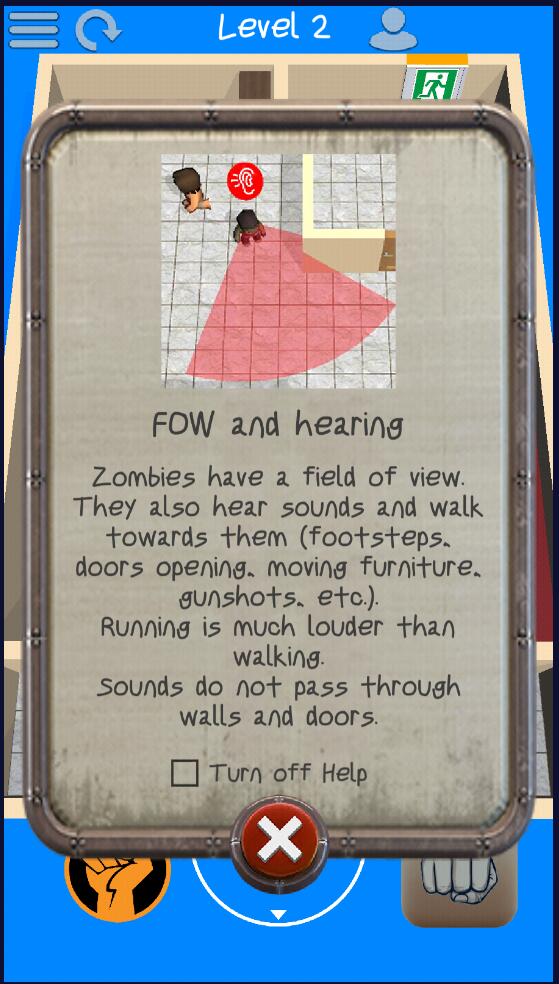 Level 2
FOW and hearing
Zombies have a field of view.
They also hear sounds and walk
towards them (footsteps,
doors opening, moving furniture,
gunshots, etc.).
Running is much louder than
walking.
Sounds do not pass through
walls and doors.
Turn off Help